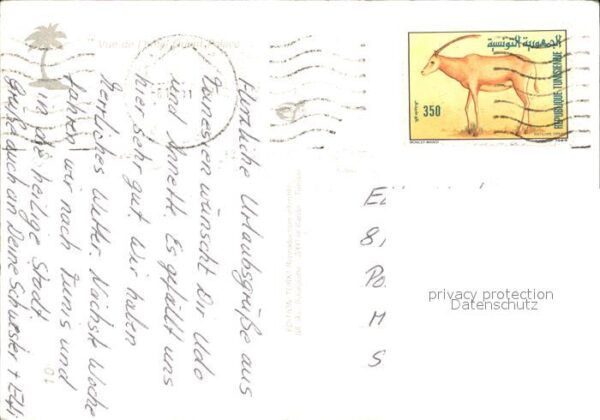 Vue de
Herzliche Urlaubsgrüße aus
Tunesien wünscht Dir Udo
und Annette. Es gefällt uns
hier sehr gut. Wir haben
herrliches Wetter. Nächste Woche
fahren wir nach Tunis und
in die heilige Stadt.
Grüße auch an Deine Schwester +
الجمهورية التونسية
350
REPUBLIQUE TUNISIENNE
E
8
Po
M
S
privacy protection
Datenschutz